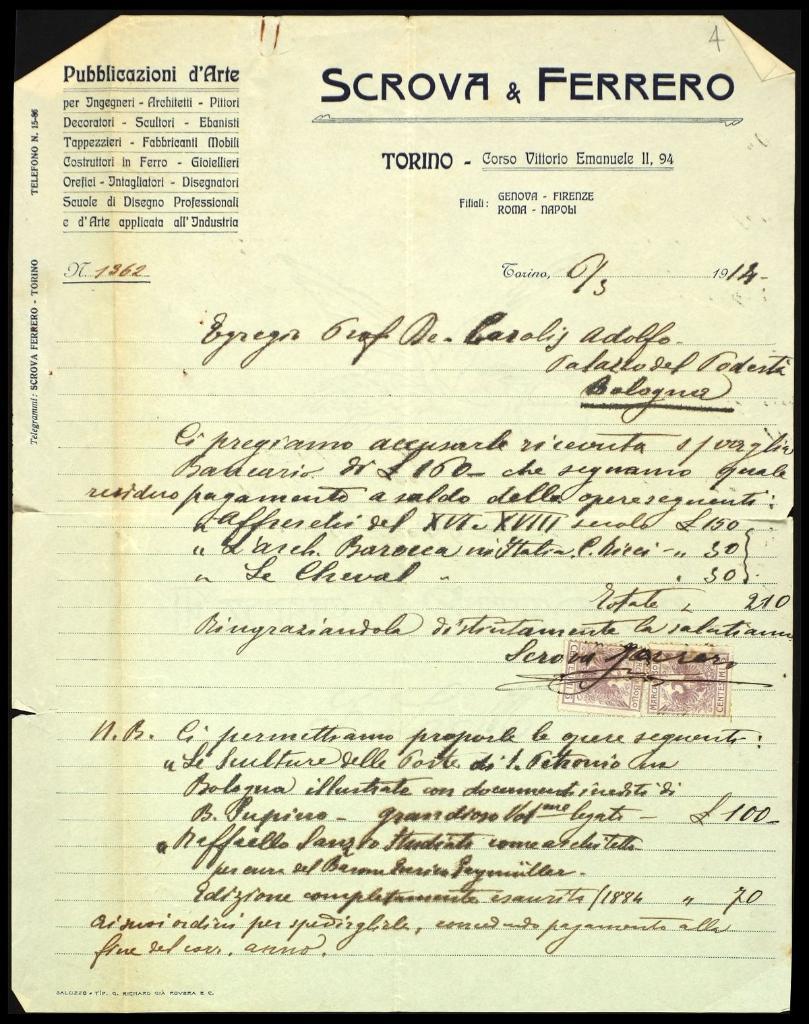 4
Pubblicazioni d'Arte
per Ingegneri - Architetti - Pittori
Decoratori - Scultori - Ebanisti
Tappezzieri - Fabbricanti Mobili
Costruttori in Ferro - Gioiellieri
Orefici - Intagliatori - Disegnatori
Scuole di Disegno Professionali
e d'Arte applicata all'Industria
SCROVA & FERRERO
TORINO - Corso Vittorio Emanuele II, 94
Filiali: GENOVA - FIRENZE
ROMA - NAPOLI
TELEFONO N. 15-86
Telegrammi: SCROVA FERRERO - TORINO
N. 1362
Torino, 6/3 1914-
Egregio Prof De-Carolis Adolfo-
Palazzo del Podestà
Bologna
Ci pregiamo accusarle ricevuta s/ vaglia
Bancario di £ 160- che segnamo quale
residuo pagamento a saldo delle opere seguenti:
" Affreschi del XVI e XVIII secolo £ 150
" L'arch. Barocca in Italia C. Ricci - " 30
" Le Cheval " " 30
Totale " 210
Ringraziandola distintamente la salutiamo
Scrova Ferrero
CENTESIMI
MARCA
N.B. Ci permettiamo proporle le opere seguenti:
" Le Sculture delle Porte di S. Petronio in
Bologna illustrate con documenti inediti di
B. Supino - grandioso Vol me legato - £ 100-
" Raffaello Sanzio Studiato come architetto
per cura del Barone Enrico Geymüller-
Edizione completamente esaurita (1884 " 70
ai suoi ordini per spedirglierle, concedendo pagamento alla
fine del corr. anno.
SALUZZO - TIP. G. RICHARD GIÀ ROVERA E C.